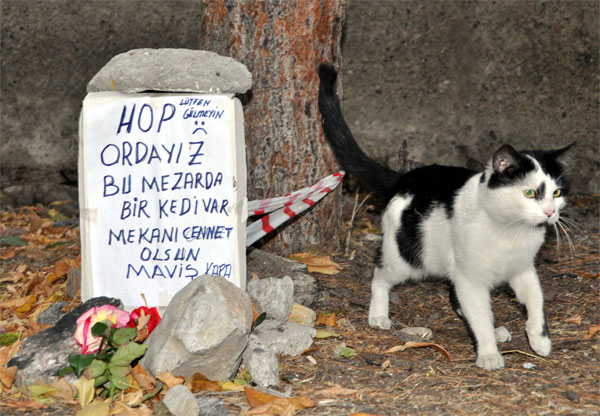 HOP LÜTFEN GÜLMEYİN
ORDAYIZ
BU MEZARDA
BİR KEDİ VAR
MEKANI CENNET
OLSUN
MAVİŞ KAPA